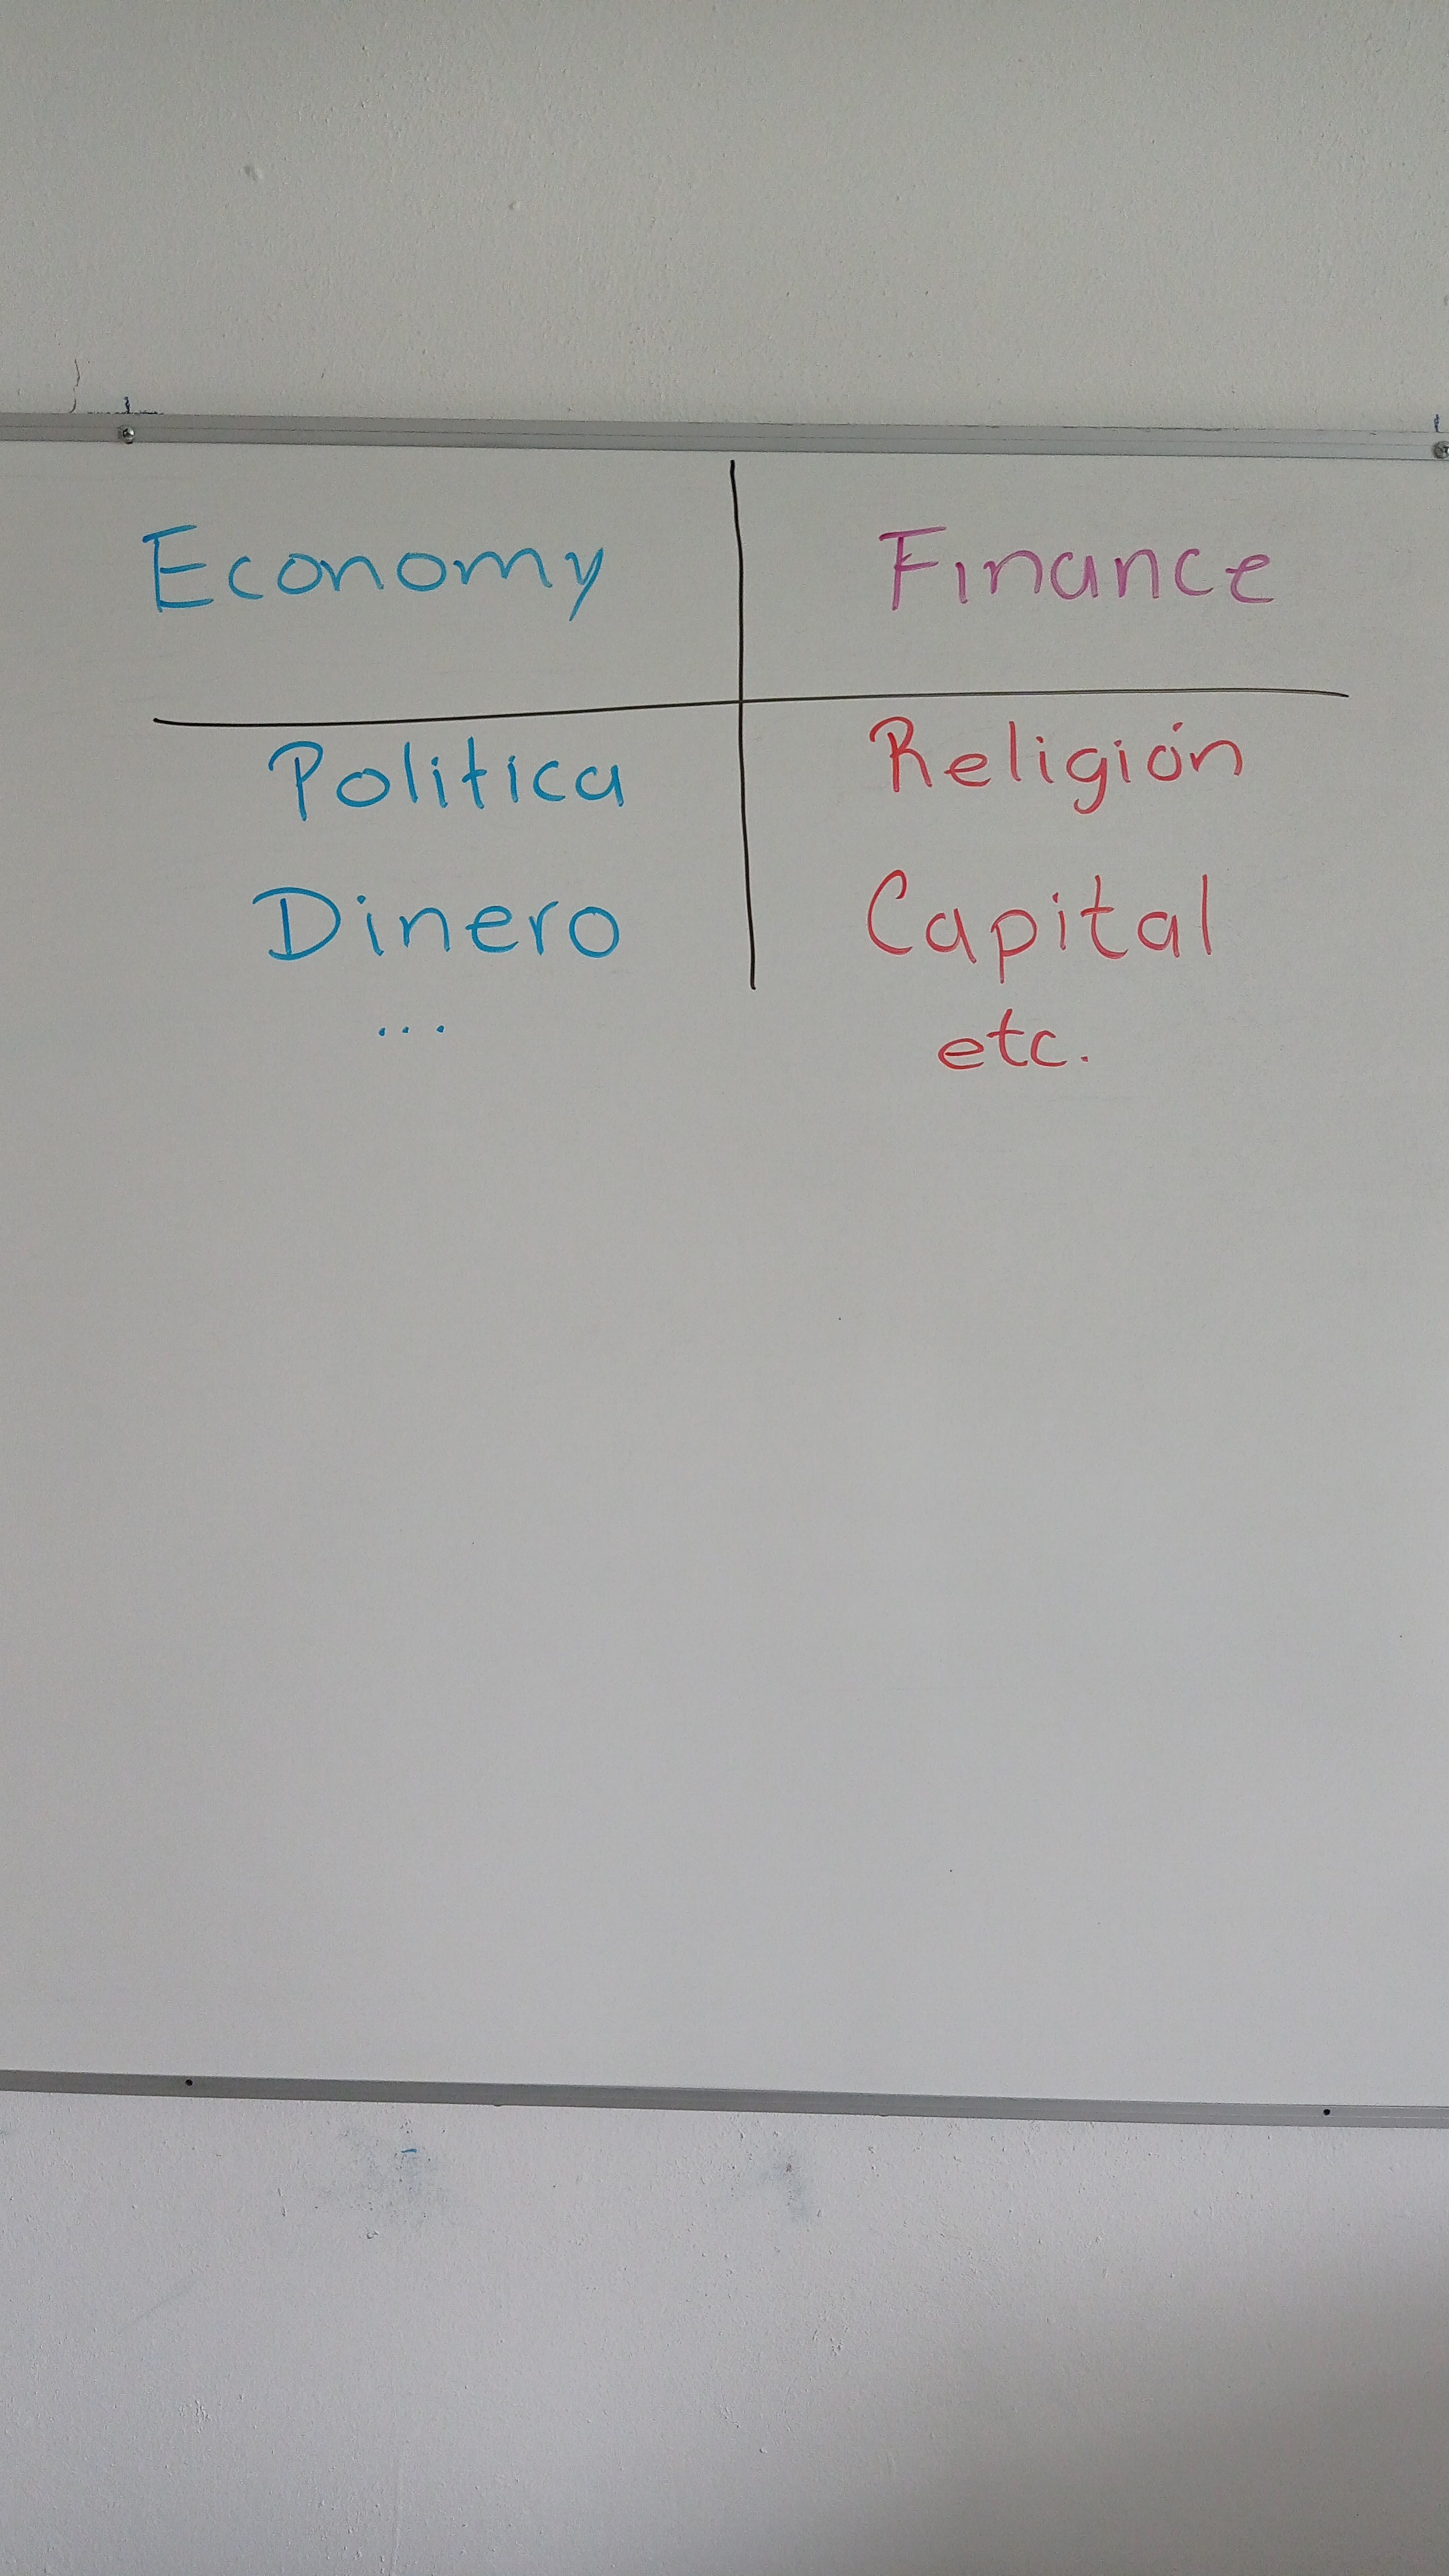 Economy Finance
Politica Religión
Dinero Capital
... etc.